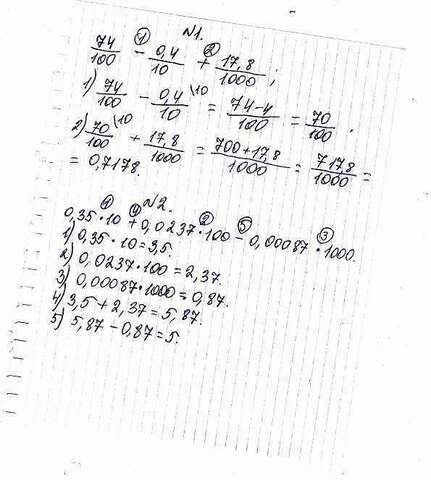 N1.
74/100 - ① 0,4/10 + ② 17,8/1000 ;
1) 74/100 - 0,4/10 \10 = 74-4/100 = 70/100 ;
2) 70/100 \10 + 17,8/1000 = 700+17,8/1000 = 717,8/1000 =
= 0,7178.
N2.
0,35 · ① 10 + ④ 0,0237 · ② 100 - ⑤ 0,00087 · ③ 1000.
1) 0,35 · 10 = 3,5.
2) 0,0237 · 100 = 2,37.
3) 0,00087 · 1000 = 0,87.
4) 3,5 + 2,37 = 5,87.
5) 5,87 - 0,87 = 5.